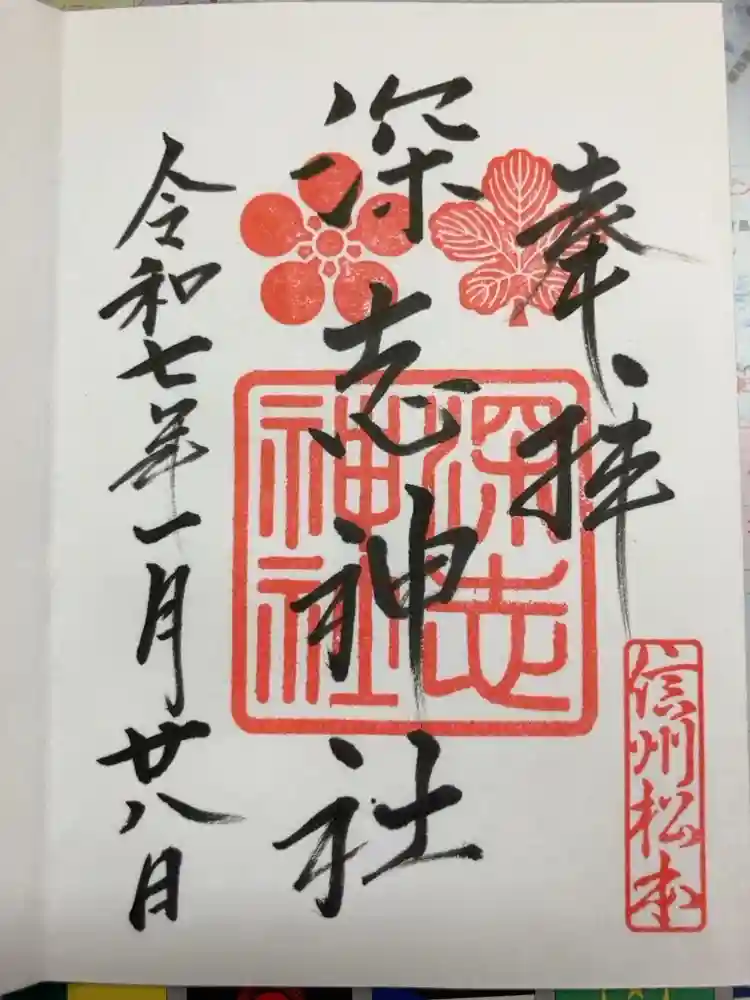 奉拝
信州松本
深志神社
深志
神社
令和七年一月廿八日